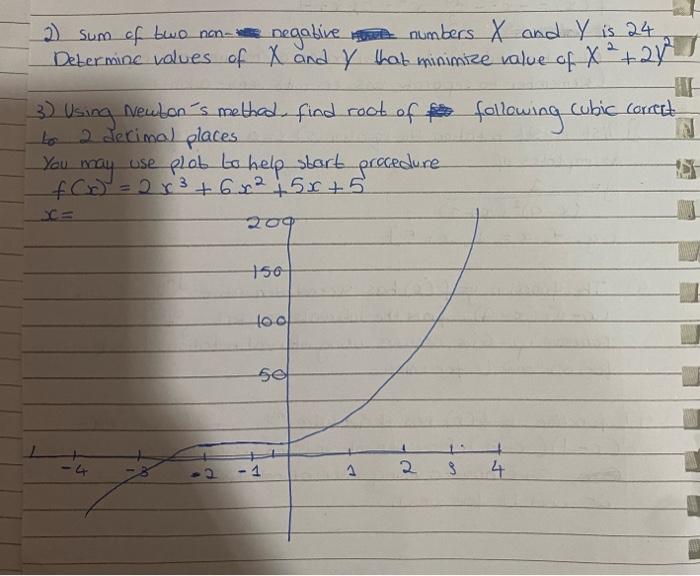 2) Sum of two non- negative numbers X and Y is 24
Determine values of X and Y that minimize value of X² + 2Y²
3) Using Newton's method, find root of following cubic correct
to 2 decimal places
You may use plot to help start procedure
f(x) = 2x³ + 6x² + 5x + 5
x =
200
150
100
50
-4 -3 -2 -1 1 2 3 4